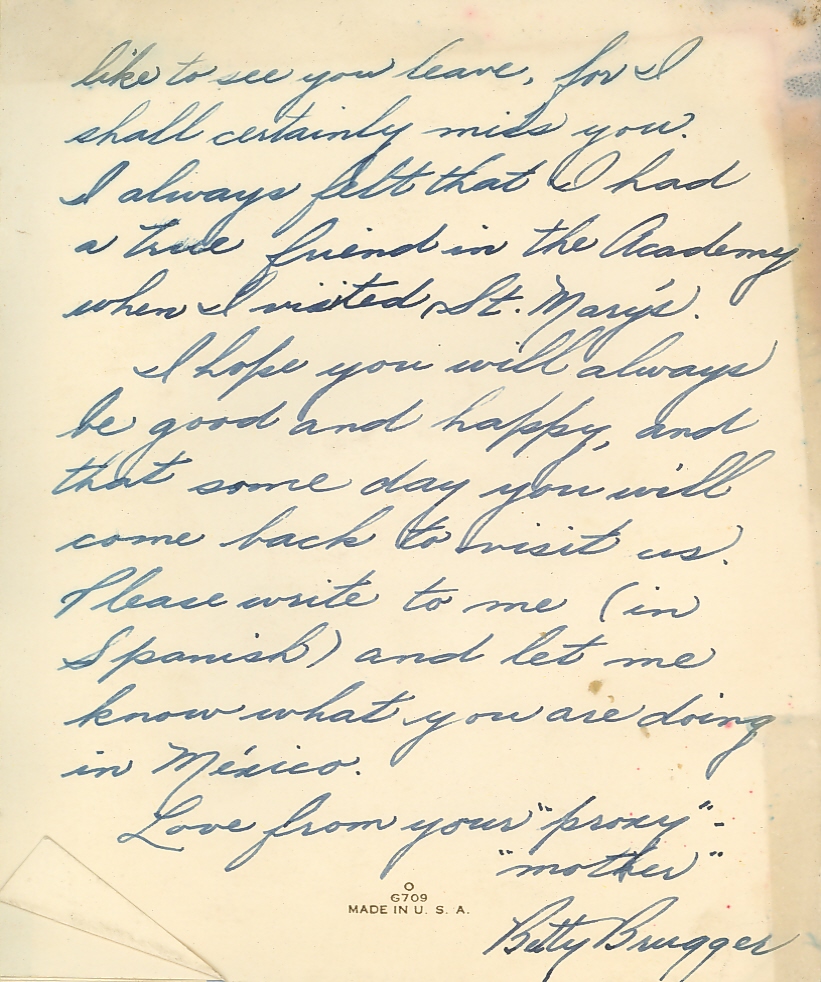 like to see you leave, for I
shall certainly miss you.
I always felt that I had
a true friend in the Academy
when I visited St. Mary's.
I hope you will always
be good and happy, and
that some day you will
come back to visit us.
Please write to me (in
Spanish) and let me
know what you are doing
in México.
Love from your "proxy"-
"mother"
G709
MADE IN U. S. A.
Betty Brugger